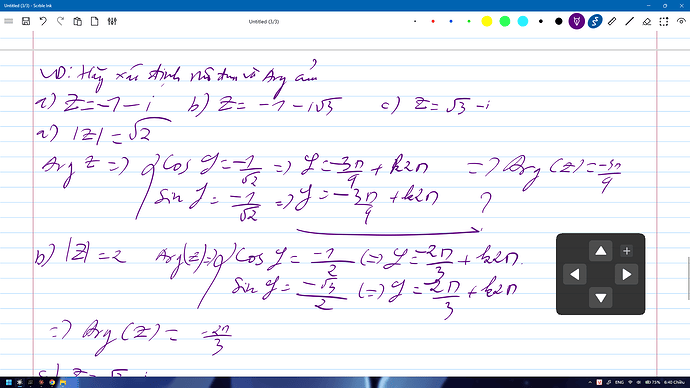 Untitled (3/3) - Scrible Ink
Untitled (3/3)
VD: Hãy xác định và Arg
a) Z = -1 - i b) Z = -1 - i√3 c) Z = √3 - i
a) |Z| = √2
Arg Z => { Cos φ = -1/√2 => φ = -3π/4 + k2π => Arg (Z) = -3π/4
Sin φ = -1/√2 => φ = -3π/4 + k2π
b) |Z| = 2 Arg(Z) => { Cos φ = -1/2 (=> φ = -2π/3 + k2π.
Sin φ = -√3/2 (=> φ = -2π/3 + k2π
=> Arg (Z) = -2π/3
c) Z = √3 - i
ENG 73% 6:40 Chiều